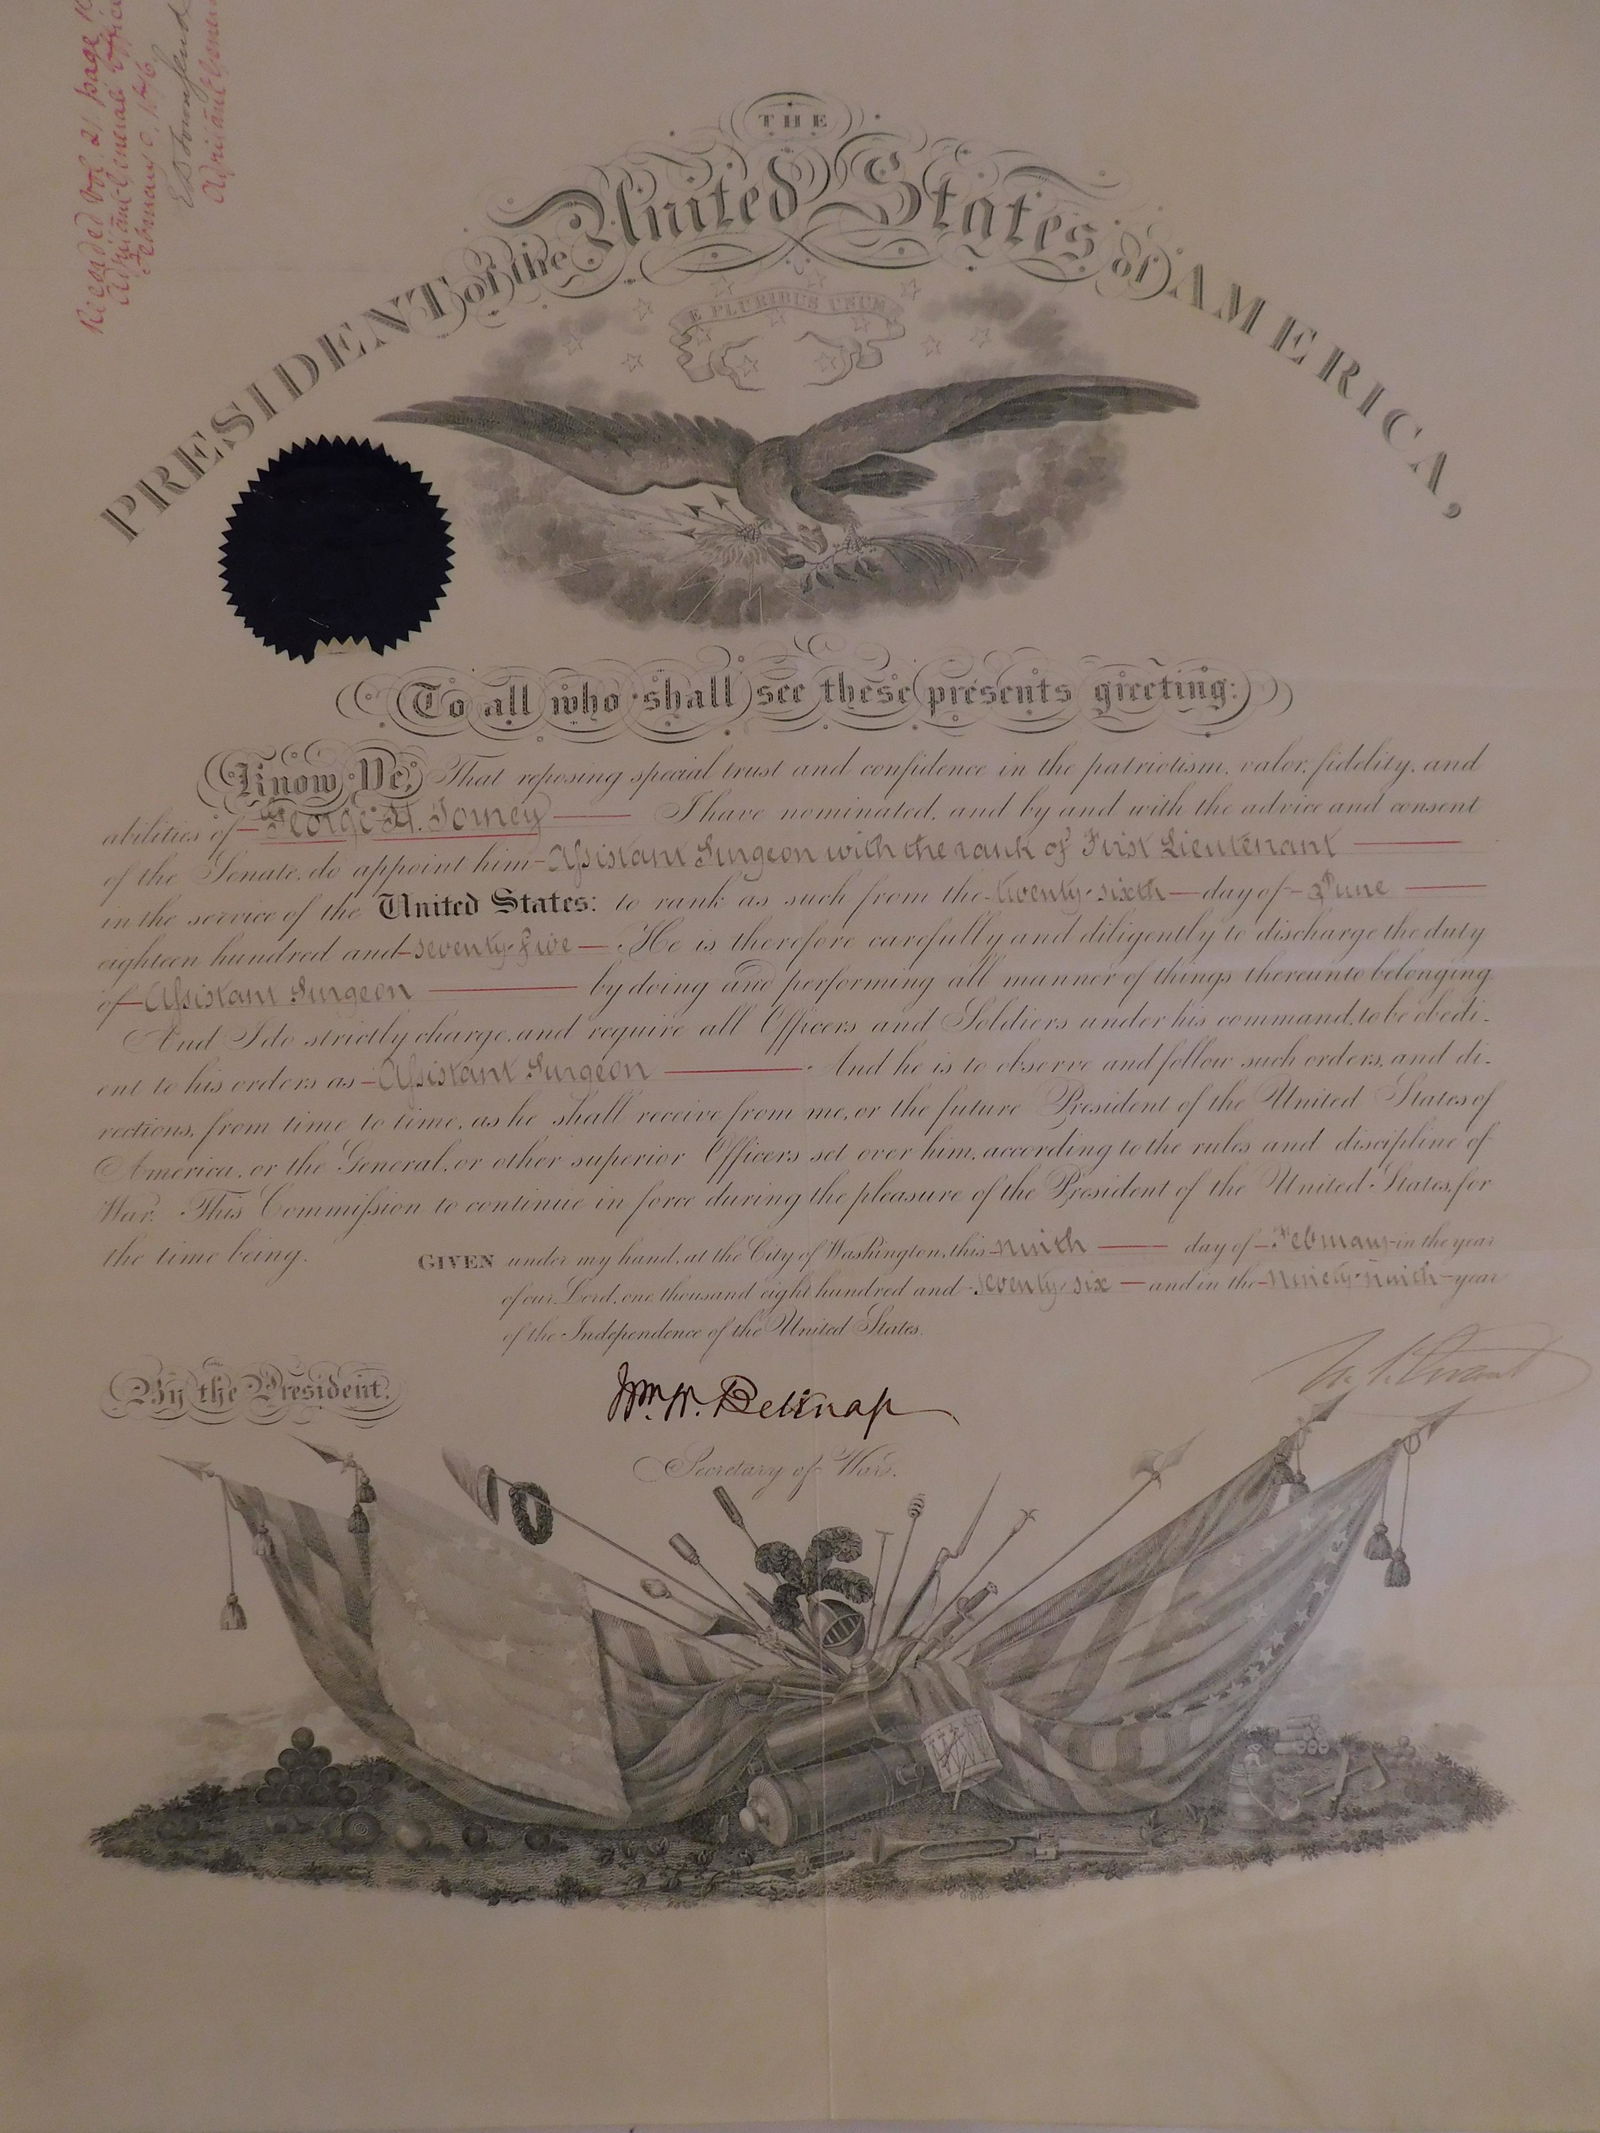 Recorded Vol. 21 page
Adjutant General's Office
February 1876
E D Townsend
Adjutant General
THE
PRESIDENT of the United States of AMERICA,
E PLURIBUS UNUM
To all who shall see these presents greeting:
Know Ye, That reposing special trust and confidence in the patriotism, valor, fidelity, and
abilities of George H. Torney I have nominated, and by and with the advice and consent
of the Senate, do appoint him Assistant Surgeon with the rank of First Lieutenant
in the service of the United States: to rank as such from the twenty-sixth day of June
eighteen hundred and seventy-five He is therefore carefully and diligently to discharge the duty
of Assistant Surgeon by doing and performing all manner of things thereunto belonging.
And I do strictly charge, and require all Officers and Soldiers under his command, to be obedi-
ent to his orders as Assistant Surgeon And he is to observe and follow such orders, and di-
rections, from time to time, as he shall receive from me, or the future President of the United States of
America, or the General, or other superior Officers set over him, according to the rules and discipline of
War. This Commission to continue in force during the pleasure of the President of the United States, for
the time being.
GIVEN under my hand, at the City of Washington, this ninth day of February in the year
of our Lord, one thousand eight hundred and seventy-six and in the ninety-ninth year
of the Independence of the United States.
U. S. Grant
By the President.
Wm. W. Belknap
Secretary of War.